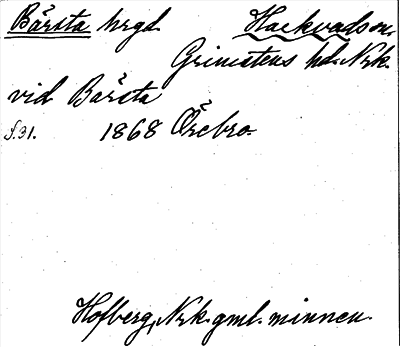 Bärsta hrgd. Hackvads sn.
Grimstens hd. Nrk.
vid Barsta
S.31. 1868 Örebro.
Hofberg, Nrk. gml. minnen.